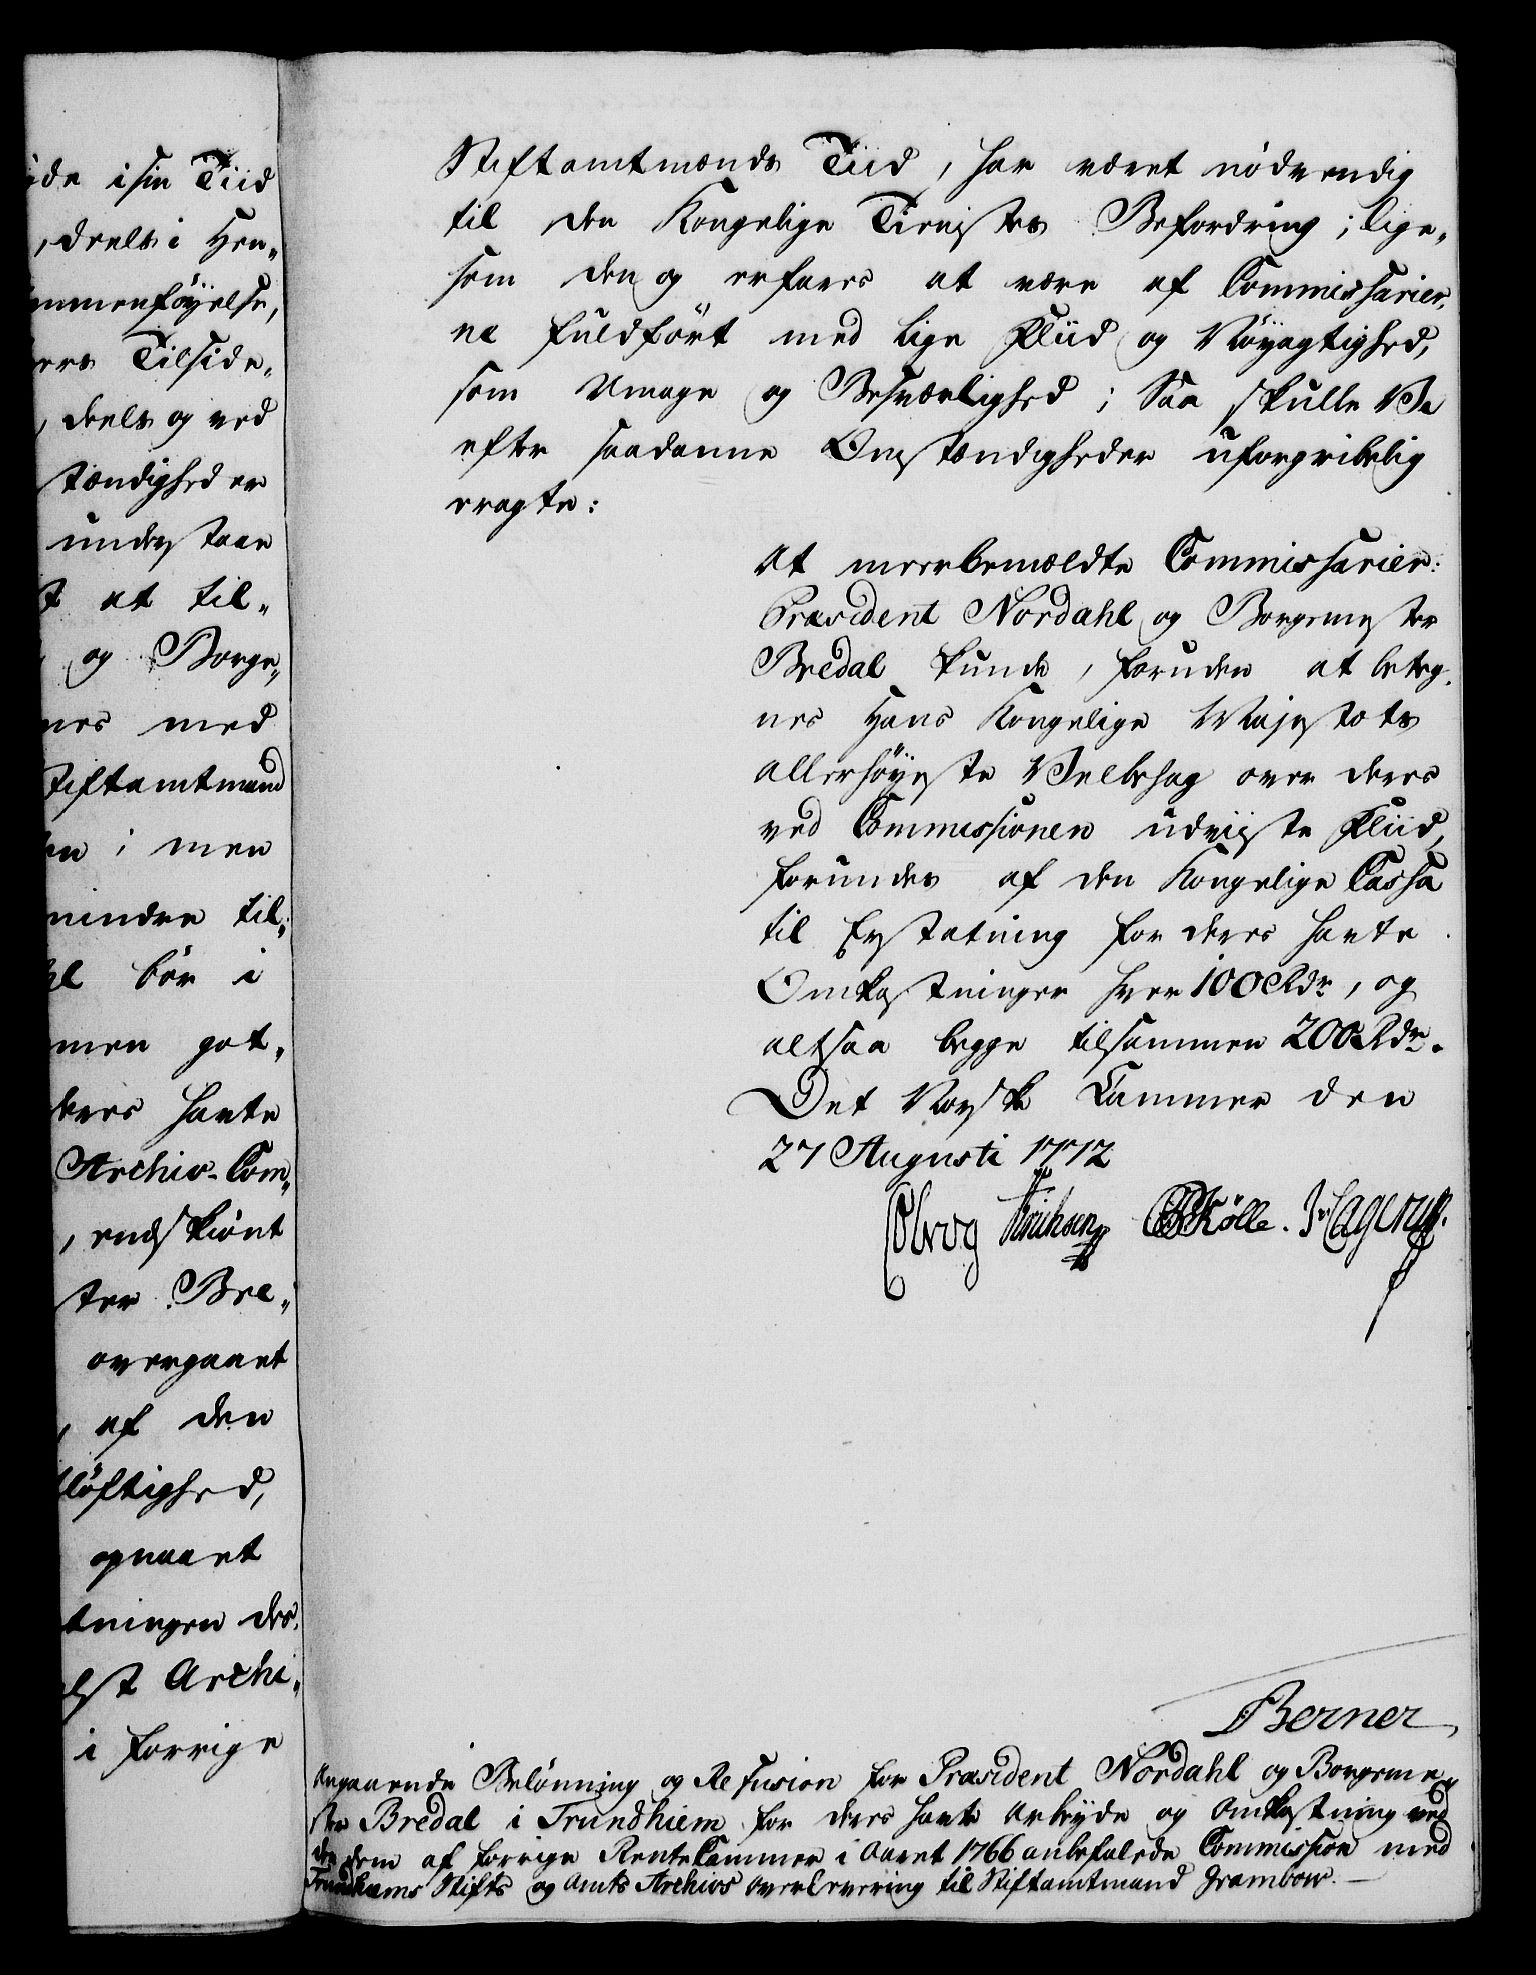 ide i sin Tiid
, deels i Hen„
mmenføyelse,
ers Tilside„
, deels og ved
stændighed er
understaae
t at til„
og Borge„
nes med
tiftamtmand
en ; men
mindre til„
hl bør i
men got„
deres havte
Archiv-Com„
, endskiønt
ster Bre„
overgaaet
, af den
tløftighed,
opnaaet
tningen des„
elst Archi„
i forrige
Stiftamtmænds Tiid, har været nødvendig
til den Kongelige Tienistes Befordring; lige„
som den og erfares at være af Commissarier„
ne fuldført med lige Fliid og Nøyagtighed,
som Umage og Besværlighed; Saa skulle Ve
efter saadanne Omstændigheder uforgribelig
eragte:
At meerbemældte Commissarier:
Præsident Nordahl og Borgemester
Bredal kunde, foruden at beteg„
nes Hans Kongelige Majestæts
allerhøyeste Velbehag over deres
ved Commissionen udviiste Fliid,
forundes af den Kongelige Cassa
til Erstatning for deres havte
Omkostninger hver 100 Rdr, og
altsaa begge tilsammen 200 Rdr.
Det Norske Cammer den
27 Augusti 1772
Erichsen CBKölle. Hagerup.
Berner
Angaaende Belønning og Refusion for Præsident Nordahl og Borgeme„
ster Bredal i Trundhiem for deres havte Arbeyde og Omkostning ved
den dem af forrige RenteCammer i Aaret 1766 anbefalede Commission med
Trundhiems Stifts og Amts Archivs Overlevering til Stiftamtmand Grambow.